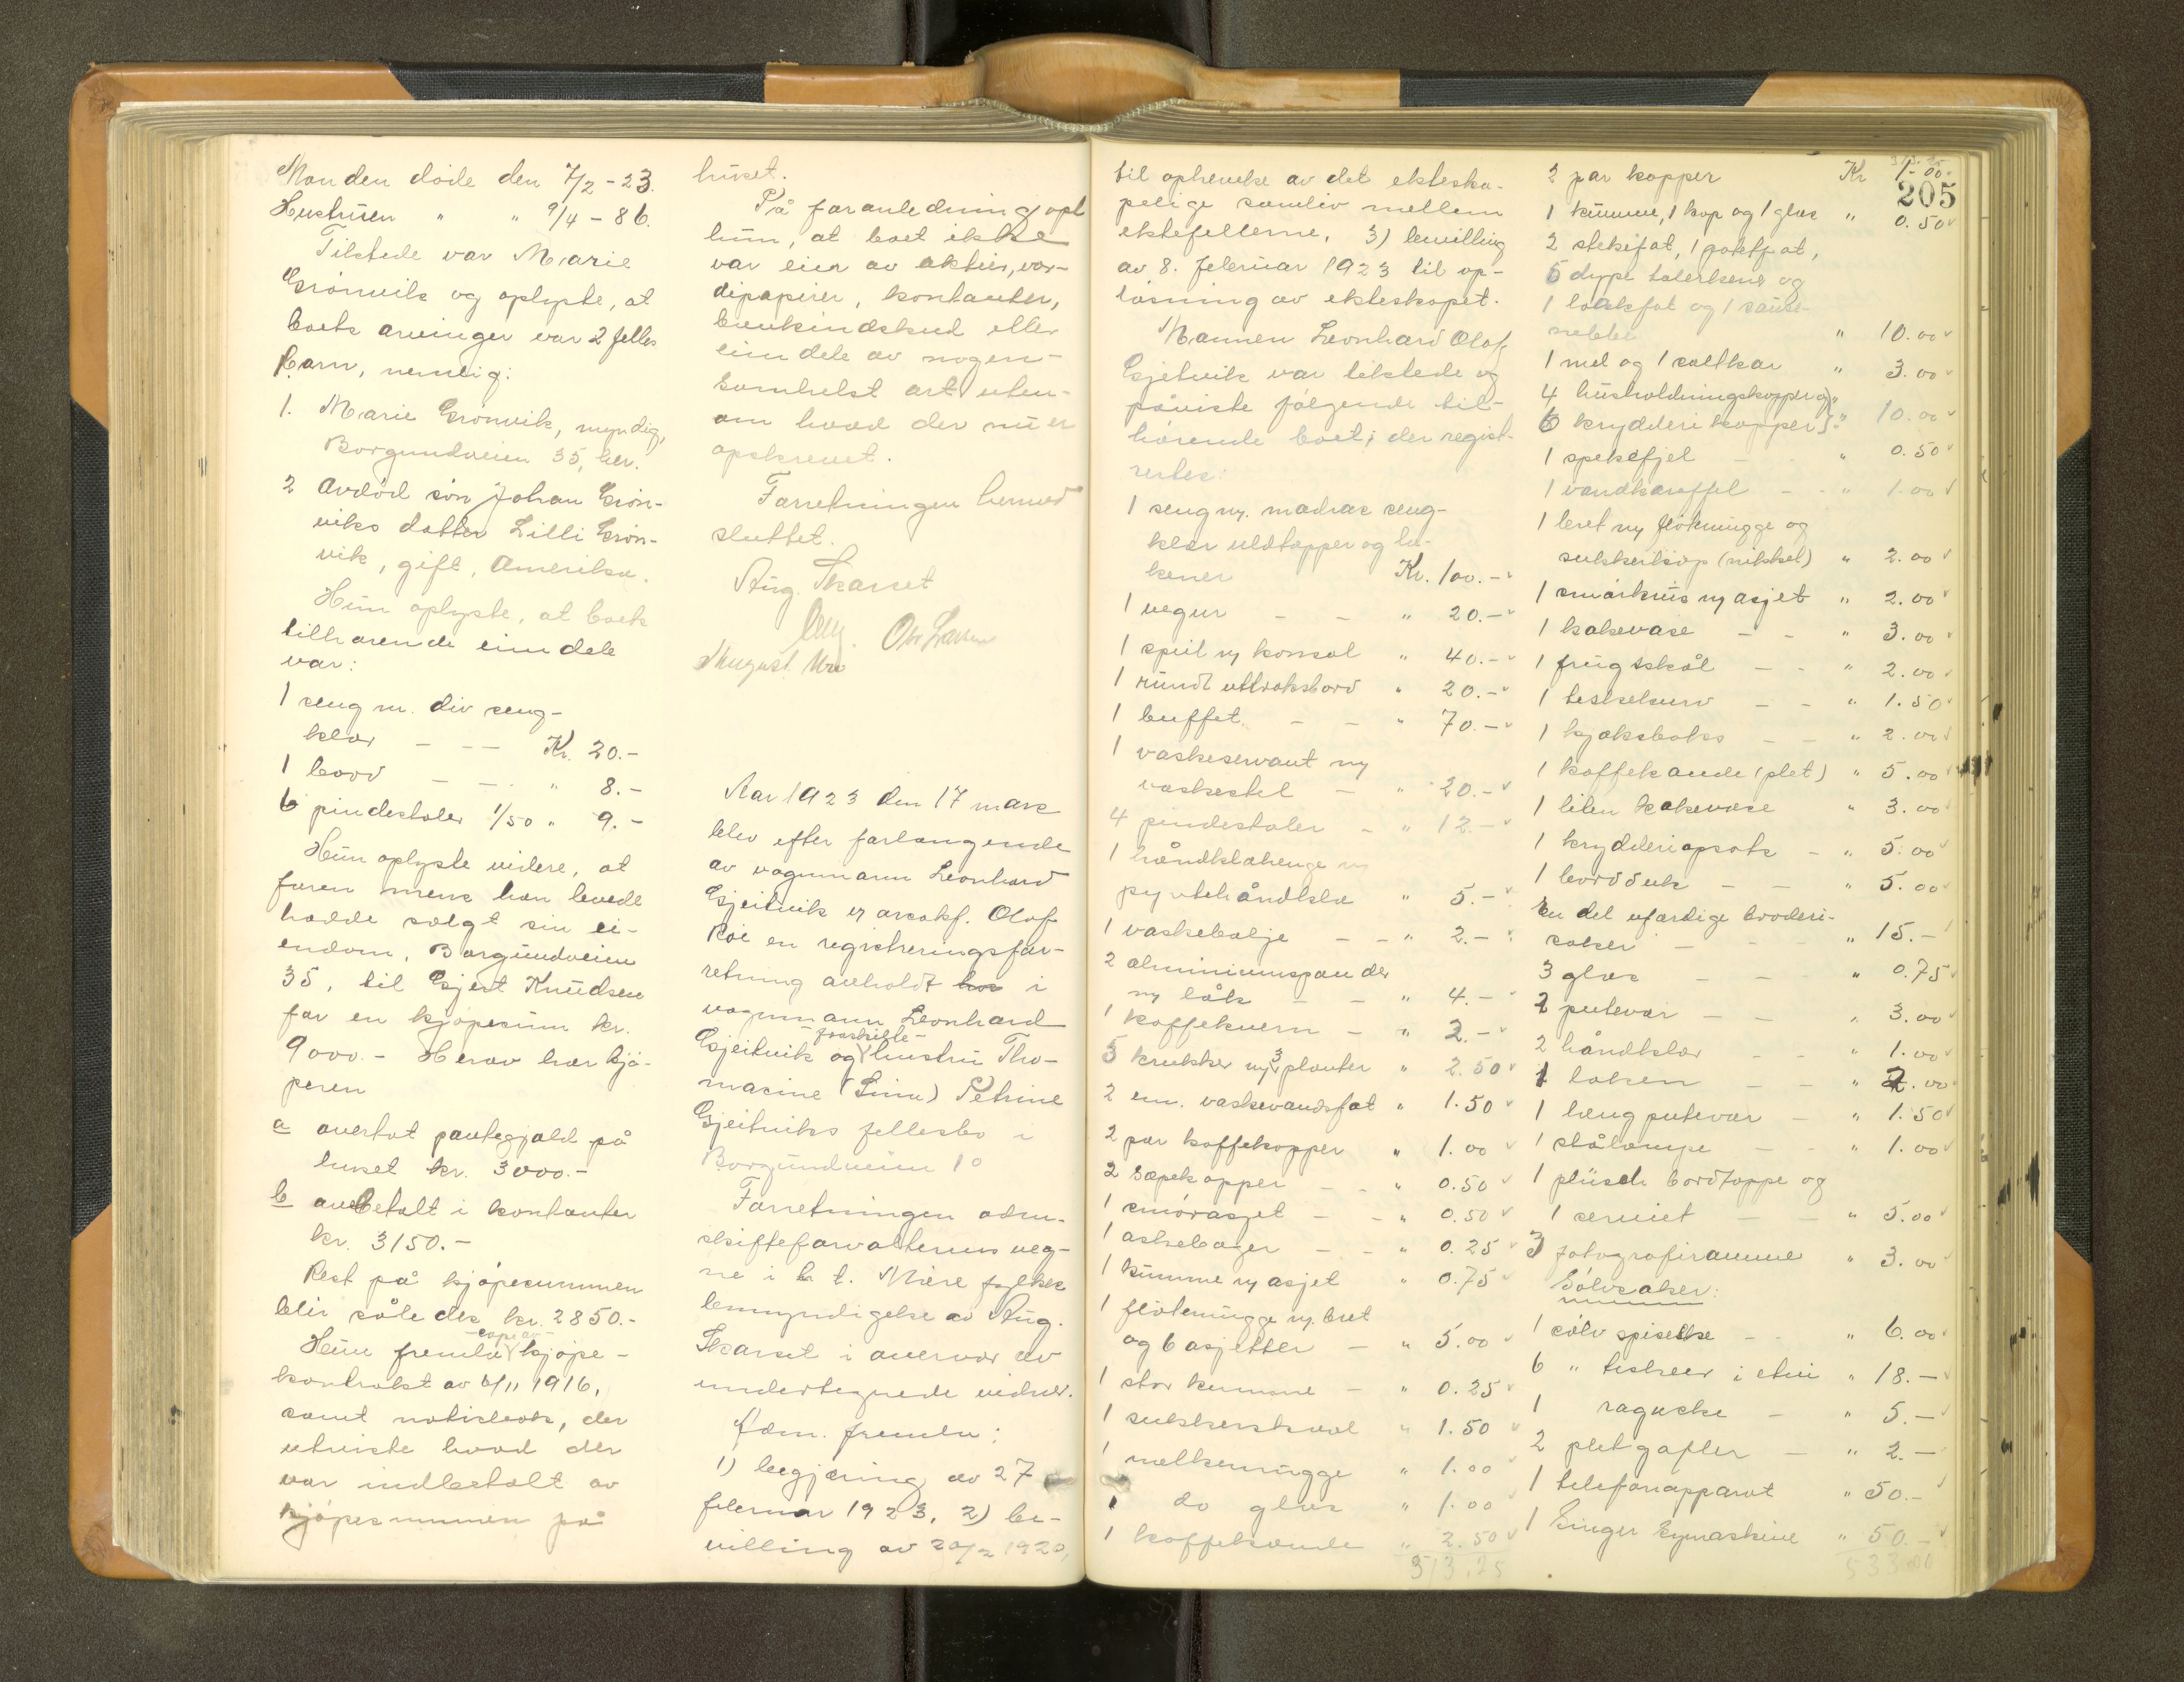 Manden døde den 7/2 - 23.
Hustruen " " 9/4 - 86.
Tilstede var Marie
Grønvik og oplyste, at
boets arvinger var 2 felles
barn, nemlig:
1. Marie Grønvik, myndig,
Borgundveien 35, her.
2 Avdød søn Johan Grøn-
viks datter Lilli Grøn-
vik, gift, Amerika.
Hun oplyste, at boets
tilhørende eiendele
var:
1 seng m. div seng-
klær - - - Kr. 20.-
1 bord - - " 8.-
6 pindestoler 1/50 " 9.-
Hun oplyste videre, at
faren mens han levede
hadde solgt sin ei-
endom, Borgundveien
35, til Gjert Knudsen
for en kjøpesum kr.
9000.- Herav har kjø-
peren
a overtat pantegjæld på
huset kr. 3000.-
b avbetalt i kontanter
kr. 3150.-
Rest på kjøpesummen
blir således kr. 2850.-
Hun fremla kopi av kjøpe-
kontrakt av 6/11 1916,
samt notisbok, der
utviste hvad der
var indbetalt av
kjøpesummen på
huset.
På foranledning opl
hun, at boet ikke
var eier av aktier, vær-
dipapirer, kontanter,
bankindskud eller
eiendele av nogen-
somhelst art uten-
om hvad der nu er
opskrevet.
Forretningen hermed
sluttet.
Aug. Skarset
August
Aar 1923 den 17 mars
blev efter forlangende
av vognmann Leonhard
Gjeitvik v/ orsakf. Olof
Roe en registreringsfor-
retning avholdt hos i
vognmann Leonhard
Gjeitvik og fraskilte hustru Tho-
masine (Sina) Petrine
Gjeitviks fellesbo i
Borgundveien 10
Forretningen adm.
skifteforvalterens veg-
ne i h. t. Møre fylkes
bemyndigelse av Aug.
Skarset i overvær av
undertegnede vidner.
Adm. fremla:
1) begjæring av 27
februar 1923, 2) be-
villing av 20/2 1920,
til ophevelse av det ekteska-
pelige samliv mellem
ektefellerne, 3) bevilling
av 8. februar 1923 til op-
løsning av ekteskapet.
Mannen Leonhard Olof
Gjeitvik var tilstede og
påviste følgende til-
hørende boet; der regist-
rertes:
1 seng m. madras seng-
klær uldtepper og la-
kener Kr. 100.-
1 vegur - - " 20.-
1 speil m konsol " 40.-
1 rundt uttræksbord " 20.-
1 buffet - - " 70.-
1 vaskeservant m
vaskestel - " 20.-
4 pindestoler - " 12.-
1 håndklæhenge m
pyntehåndklæ " 5.-
1 vaskebalje - - " 2.-
2 aluminiumspander
m låk - - " 4.-
1 kaffekvern - " 2.-
5 krukker m 3 planter " 2.50
2 em. vaskevandsfat " 1.50
2 par kaffekopper " 1.00
2 sæpekopper - - " 0.50
1 smørasjet - - " 0.50
1 askebæger - - " 0.25
1 kumme m asjet " 0.75
1 fløtemugge m. bret
og 6 asjetter - " 5.00
1 stor kumme - " 0.25
1 sukkerskaal " 1.50
1 melkemugge " 1.00
1 do glas " 1.00
1 kaffekande " 2.50
313.25
313.25
205
2 par kopper Kr 1.00
1 kumme, 1 kop og 1 glas " 0.50
2 stekefat, 1 potetfat,
5 dype talerkener og
1 laksfat og 1 sause-
nebbe " 10.00
1 mel og 1 saltkar " 3.00
4 husholdningskopper og
6 krydderikopper } " 10.00
1 spekefjel - " 0.50
1 vandkaraffel - - " 1.00
1 bret m fløtemugge og
sukkerkop (nikkel) " 2.00
1 smørkrus m asjet " 2.00
1 kakevase - - " 3.00
1 frugtskål - - " 2.00
1 teskekurv - - " 1.50
1 kjeksboks - - " 2.00
1 kaffekande (plet) " 5.00
1 liten kakevase " 3.00
1 krydderiopsats - " 5.00
1 bordduk - - " 5.00
En del uferdige broderi-
saker - " 15.-
3 glas - - " 0.75
2 putevar - - " 3.00
2 håndklær - - " 1.00
1 laken - - " 2.00
1 lang putevar - " 1.50
1 stålampe - - " 1.00
1 plüsch bordteppe og
1 serviet - - " 5.00
3 fotografiramme " 3.00
Sølvsaker:
1 sølv spiseske - " 6.00
6 " teskeer i etui " 18.-
1 raguske - " 5.-
2 pletgafler - " 2.-
1 telefonapparat " 50.-
1 Singer symaskine " 50.-
533.00